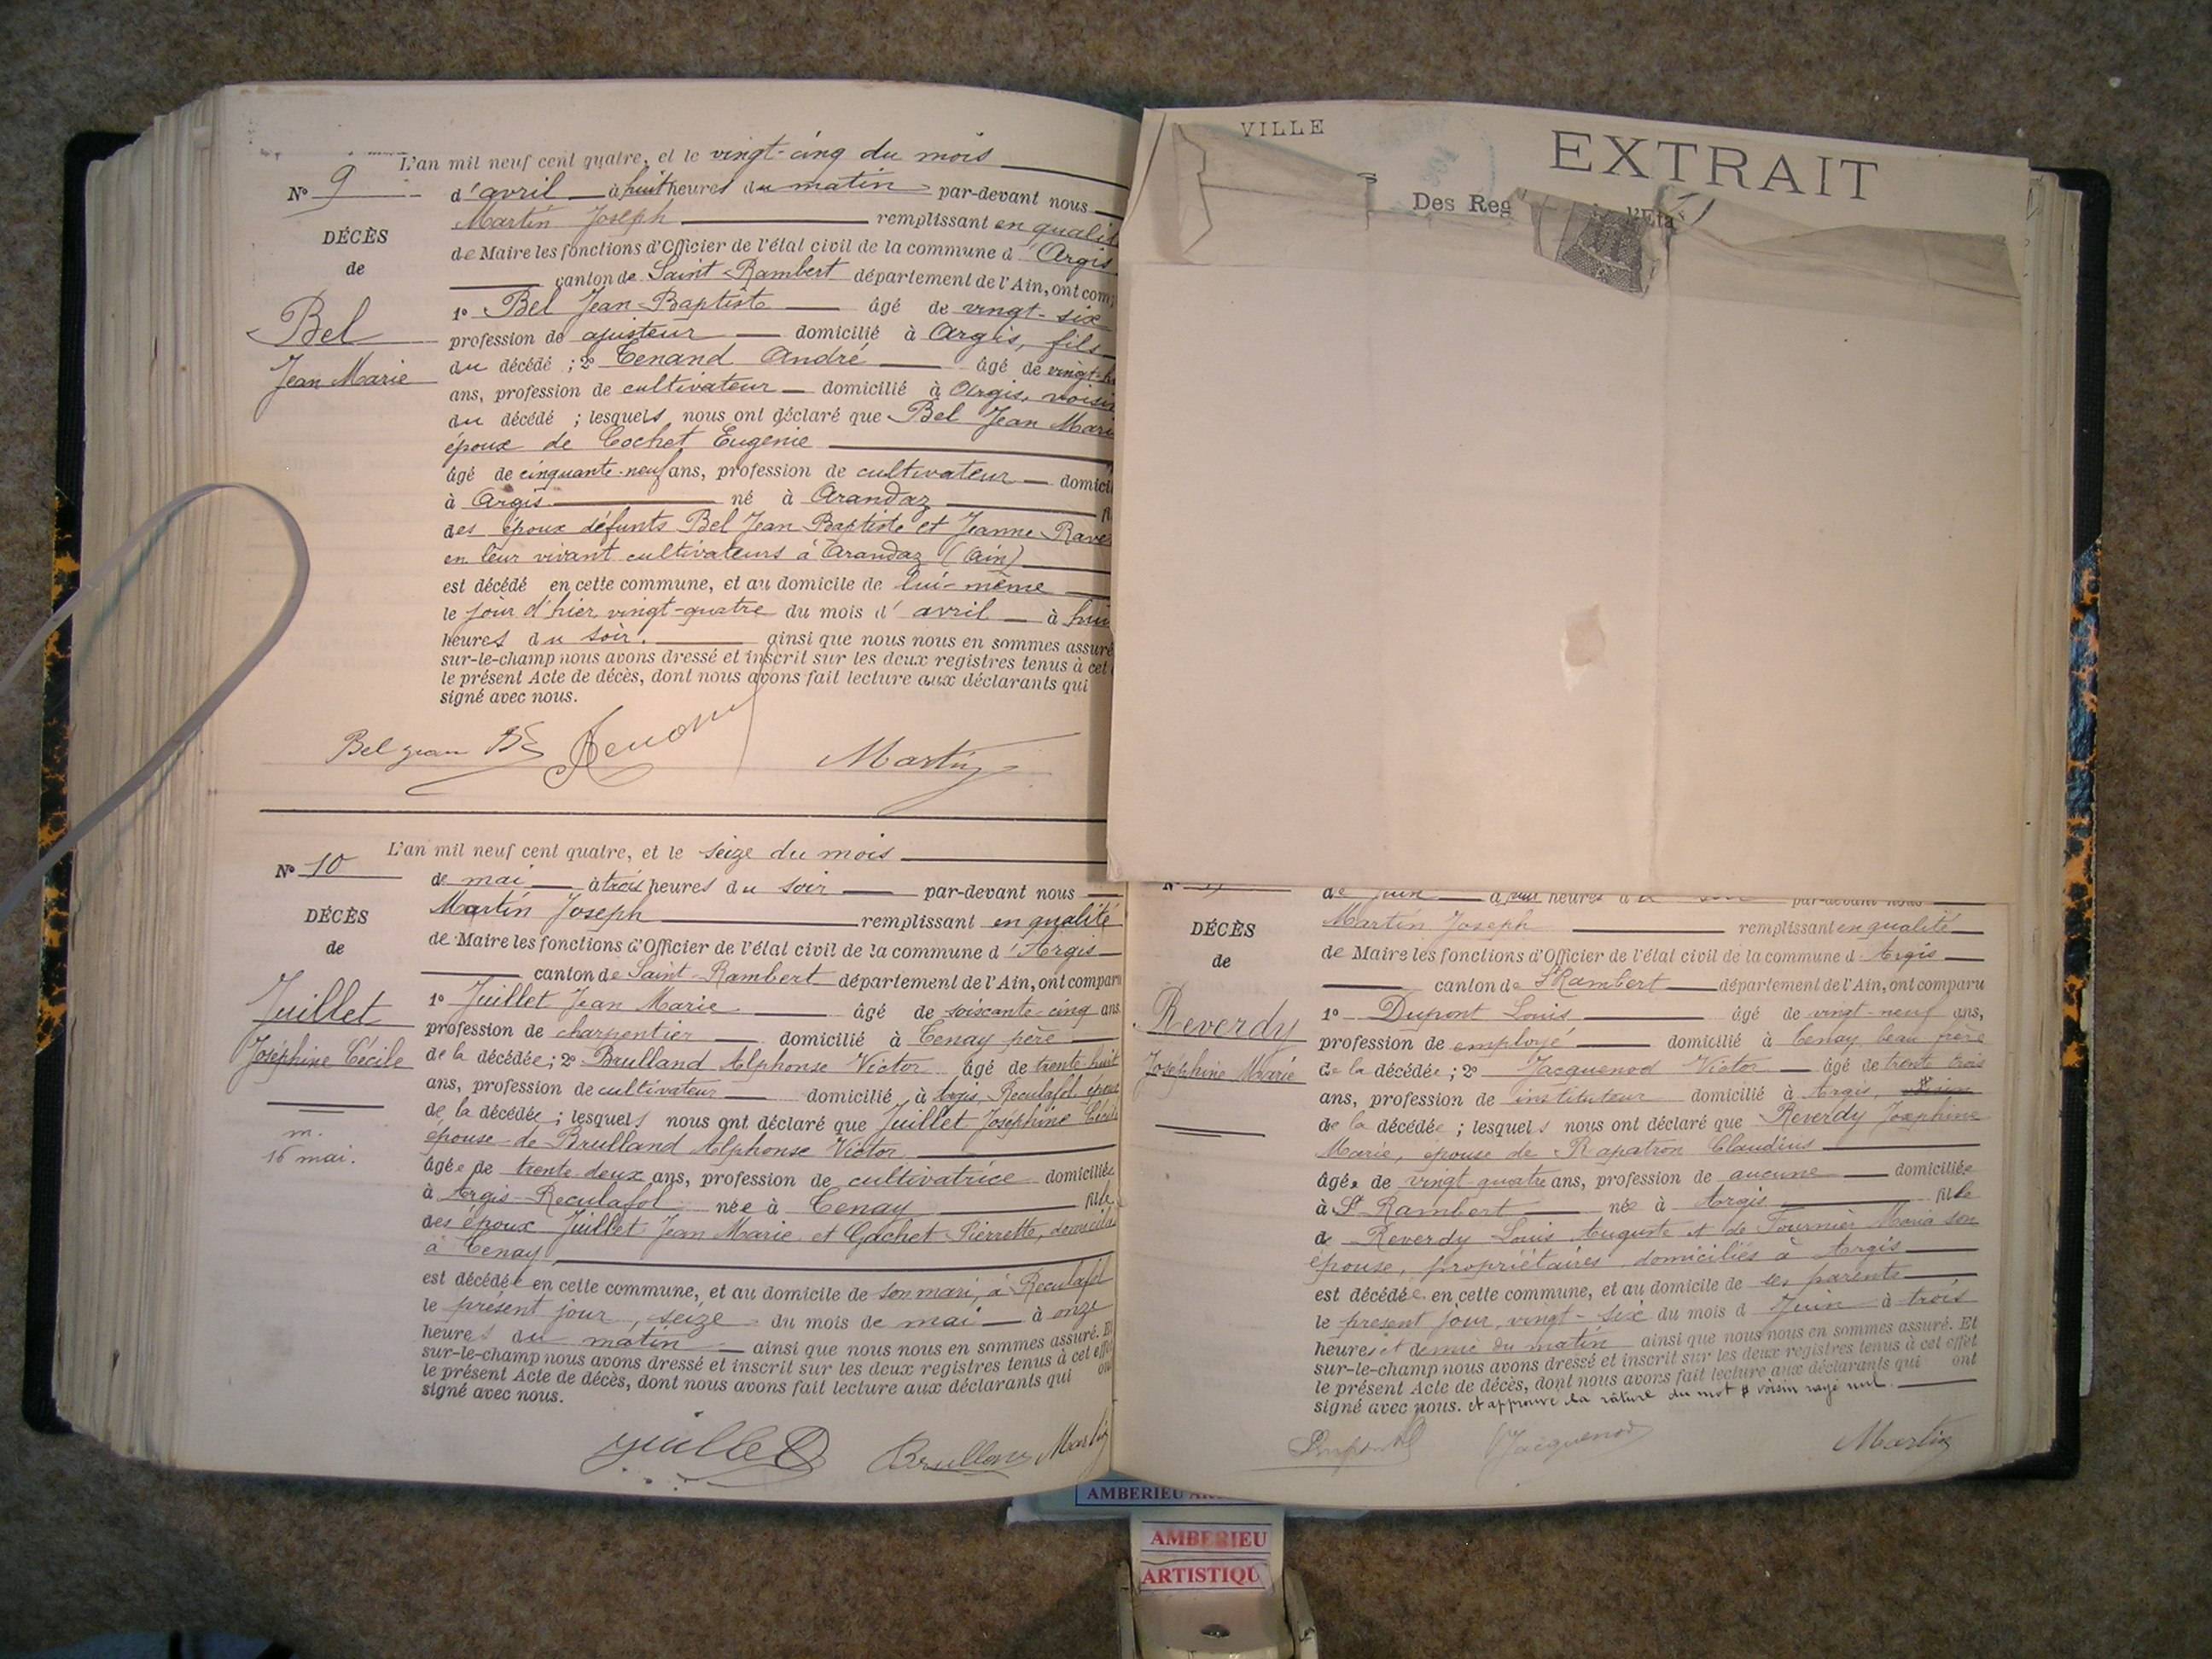 L'an mil neuf cent quatre, et le vingt-cinq du mois
N° 9
d'avril à huit heures du matin par-devant nous
Martin Joseph remplissant en qualit
DÉCÈS
de
Bel
Jean Marie
de Maire les fonctions d'Officier de l'état civil de la commune d'Argis
canton de Saint-Rambert département de l'Ain, ont com
1° Bel Jean-Baptiste âgé de vingt-six
profession de ajusteur domicilié à Argis, fils
du décédé ; 2° Tenand André âgé de vingt-h
ans, profession de cultivateur domicilié à Argis, voisin
du décédé ; lesquels nous ont déclaré que Bel Jean Mari
époux de Cochet Eugenie
âgé de cinquante-neuf ans, profession de cultivateur domici
à Argis né à Arandaz
des époux défunts Bel Jean Baptiste et Jeanne Rave
en leur vivant cultivateurs à Arandaz (Ain)
est décédé en cette commune, et au domicile de lui-même
le jour d'hier, vingt-quatre du mois d'avril à hui
heures du soir. ainsi que nous nous en sommes assuré
sur-le-champ nous avons dressé et inscrit sur les deux registres tenus à cet
le présent Acte de décès, dont nous avons fait lecture aux déclarants qui
signé avec nous.
Bel jean Bte Tenand Martin
L'an mil neuf cent quatre, et le seize du mois
N° 10
de mai à trois heures du soir par-devant nous
Martin Joseph remplissant en qualité
DÉCÈS
de
Juillet
Joséphine Cécile
m.
16 mai.
de Maire les fonctions d'Officier de l'état civil de la commune d'Argis
canton de Saint-Rambert département de l'Ain, ont comparu
1° Juillet Jean Marie âgé de soixante-cinq ans
profession de charpentier domicilié à Tenay père
de la décédée ; 2° Brulland Alphonse Victor âgé de trente huit
ans, profession de cultivateur domicilié à Argis, Reculafol, époux
de la décédée ; lesquels nous ont déclaré que Juillet Joséphine Cécile
épouse de Brulland Alphonse Victor
âgée de trente-deux ans, profession de cultivatrice domiciliée
à Argis-Reculafol née à Tenay fille
des époux Juillet Jean Marie et Gachet Pierrette, domiciliés
à Tenay
est décédée en cette commune, et au domicile de son mari, à Reculafol
le présent jour, seize du mois de mai à onze
heures du matin ainsi que nous nous en sommes assuré. Et
sur-le-champ nous avons dressé et inscrit sur les deux registres tenus à cet effet
le présent Acte de décès, dont nous avons fait lecture aux déclarants qui ont
signé avec nous.
juillet Brulland Martin
VILLE
EXTRAIT
Des Reg l'Eta
de juin heures par-devant nous
Martin Joseph remplissant en qualité
DÉCÈS
de
Reverdy
Joséphine Marie
de Maire les fonctions d'Officier de l'état civil de la commune d'Argis
canton de St Rambert département de l'Ain, ont comparu
1° Dupont Louis âgé de vingt-neuf ans,
profession de employé domicilié à Tenay, beau frère
de la décédée ; 2° Jacquenod Victor âgé de trente trois
ans, profession de instituteur domicilié à Argis, voisin
de la décédée ; lesquels nous ont déclaré que Reverdy Joséphine
Marie, épouse de Rapatron Claudius
âgée de vingt-quatre ans, profession de aucune domiciliée
à St Rambert née à Argis fille
de Reverdy Louis Auguste et de Fournier Maria son
épouse, propriétaires, domiciliés à Argis
est décédée en cette commune, et au domicile de ses parents
le présent jour, vingt-six du mois d Juin à trois
heures et demie du matin ainsi que nous nous en sommes assuré. Et
sur-le-champ nous avons dressé et inscrit sur les deux registres tenus à cet effet
le présent Acte de décès, dont nous avons fait lecture aux déclarants qui ont
signé avec nous. et approuvé la rature du mot voisin rayé nul.
Dupont Jacquenod Martin
AMBERIEU
AMBERIEU
ARTISTIQU